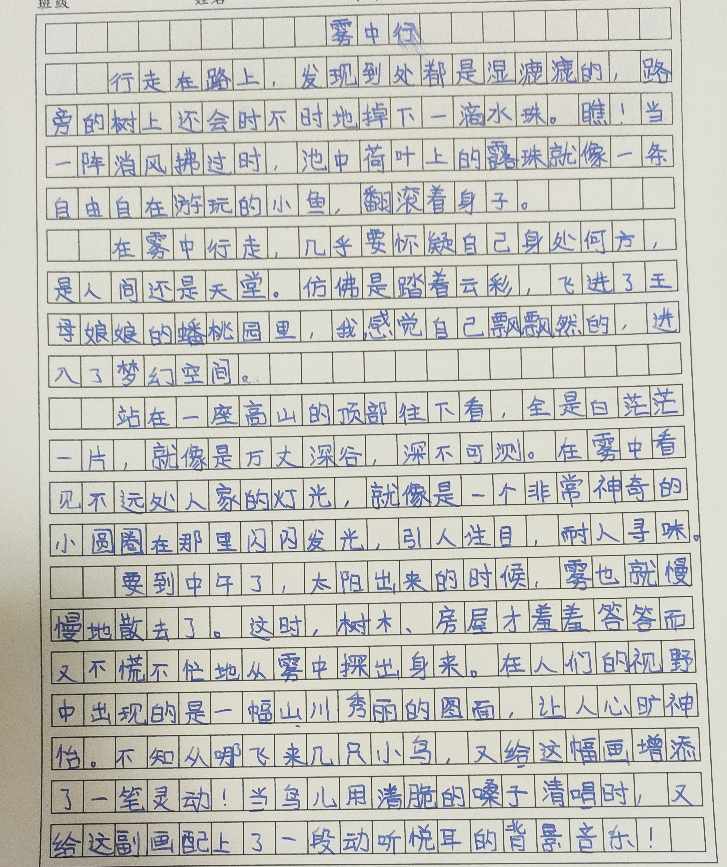 班级
雾中行
行走在路上，发现到处都是湿漉漉的，路
旁的树上还会时不时地掉下一滴水珠。瞧！当
一阵消风拂过时，池中荷叶上的露珠就像一条
自由自在游玩的小鱼，翻滚着身子。
在雾中行走，几乎要怀疑自己身处何方，
是人间还是天堂。仿佛是踏着云彩，飞进了王
母娘娘的蟠桃园里，我感觉自己飘飘然的，进
入了梦幻空间。
站在一座高山的顶部往下看，全是白茫茫
一片，就像是万丈深谷，深不可测。在雾中看
见不远处人家的灯光，就像是一个非常神奇的
小圆圈在那里闪闪发光，引人注目，耐人寻味。
要到中午了，太阳出来的时候，雾也就慢
慢地散去了。这时，树木、房屋才羞羞答答而
又不慌不忙地从雾中探出身来。在人们的视野
中出现的是一幅山川秀丽的图面，让人心旷神
怡。不知从哪飞来几只小鸟，又给这幅画增添
了一笔灵动！当鸟儿用清脆的嗓子清唱时，又
给这副画配上了一段动听悦耳的背景音乐！